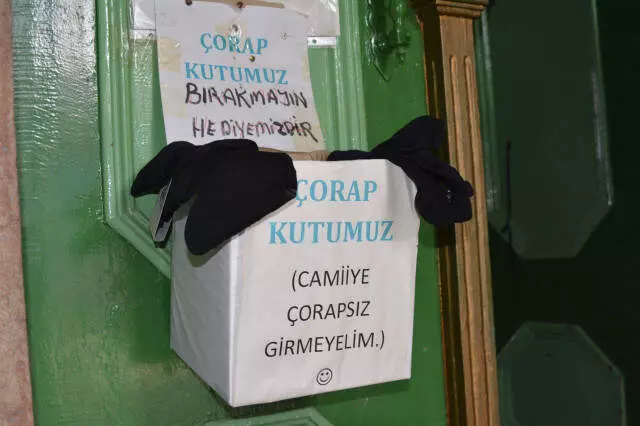 ÇORAP
KUTUMUZ
BIRAKMAYIN
HEDİYEMİZDİR
ÇORAP
KUTUMUZ
(CAMİİYE
ÇORAPSIZ
GİRMEYELİM.)